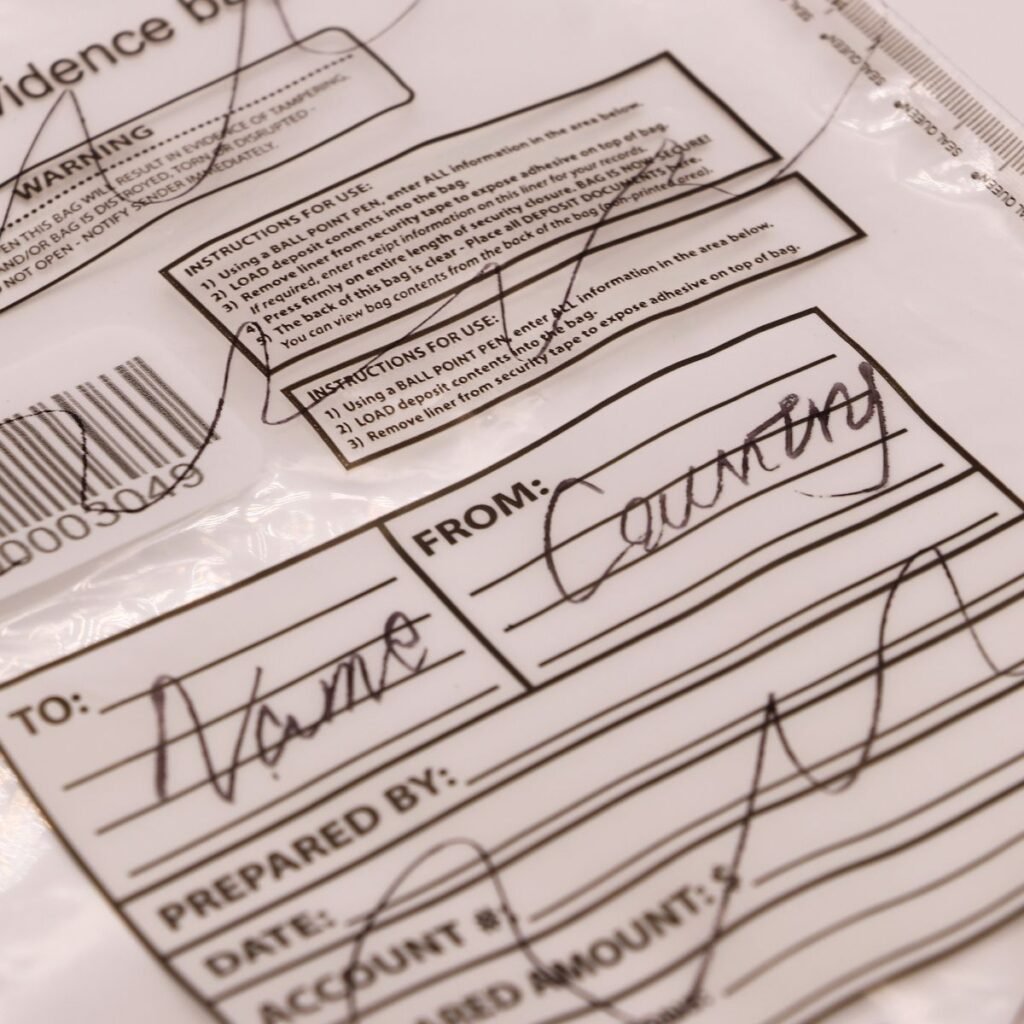 vidence b
WARNING
EN THIS BAG WILL RESULT IN EVIDENCE OF TAMPERING.
AND/OR BAG IS DISTROYED, TORN OR DISRUPTED -
NOT OPEN - NOTIFY SENDER IMMEDIATELY.
INSTRUCTIONS FOR USE:
1) Using a BALL POINT PEN, enter ALL information in the area below.
2) LOAD deposit contents into the bag.
3) Remove liner from security tape to expose adhesive on top of bag.
If required, enter receipt information on this liner for your records.
4) Press firmly on entire length of security closure. BAG IS NOW SECURE!
5) The back of this bag is clear. Place all DEPOSIT DOCUMENTS here.
You can view bag contents from the back of the bag (non-printed area).
INSTRUCTIONS FOR USE:
1) Using a BALL POINT PEN, enter ALL information in the area below.
2) LOAD deposit contents into the bag.
3) Remove liner from security tape to expose adhesive on top of bag.
SEAL QUEEN®
SEAL QUEEN®
SEAL QUEEN®
SEAL QUEEN®
0003049
FROM:
TO: Name
PREPARED BY:
DATE:
ACCOUNT #:
ARED AMOUNT: $